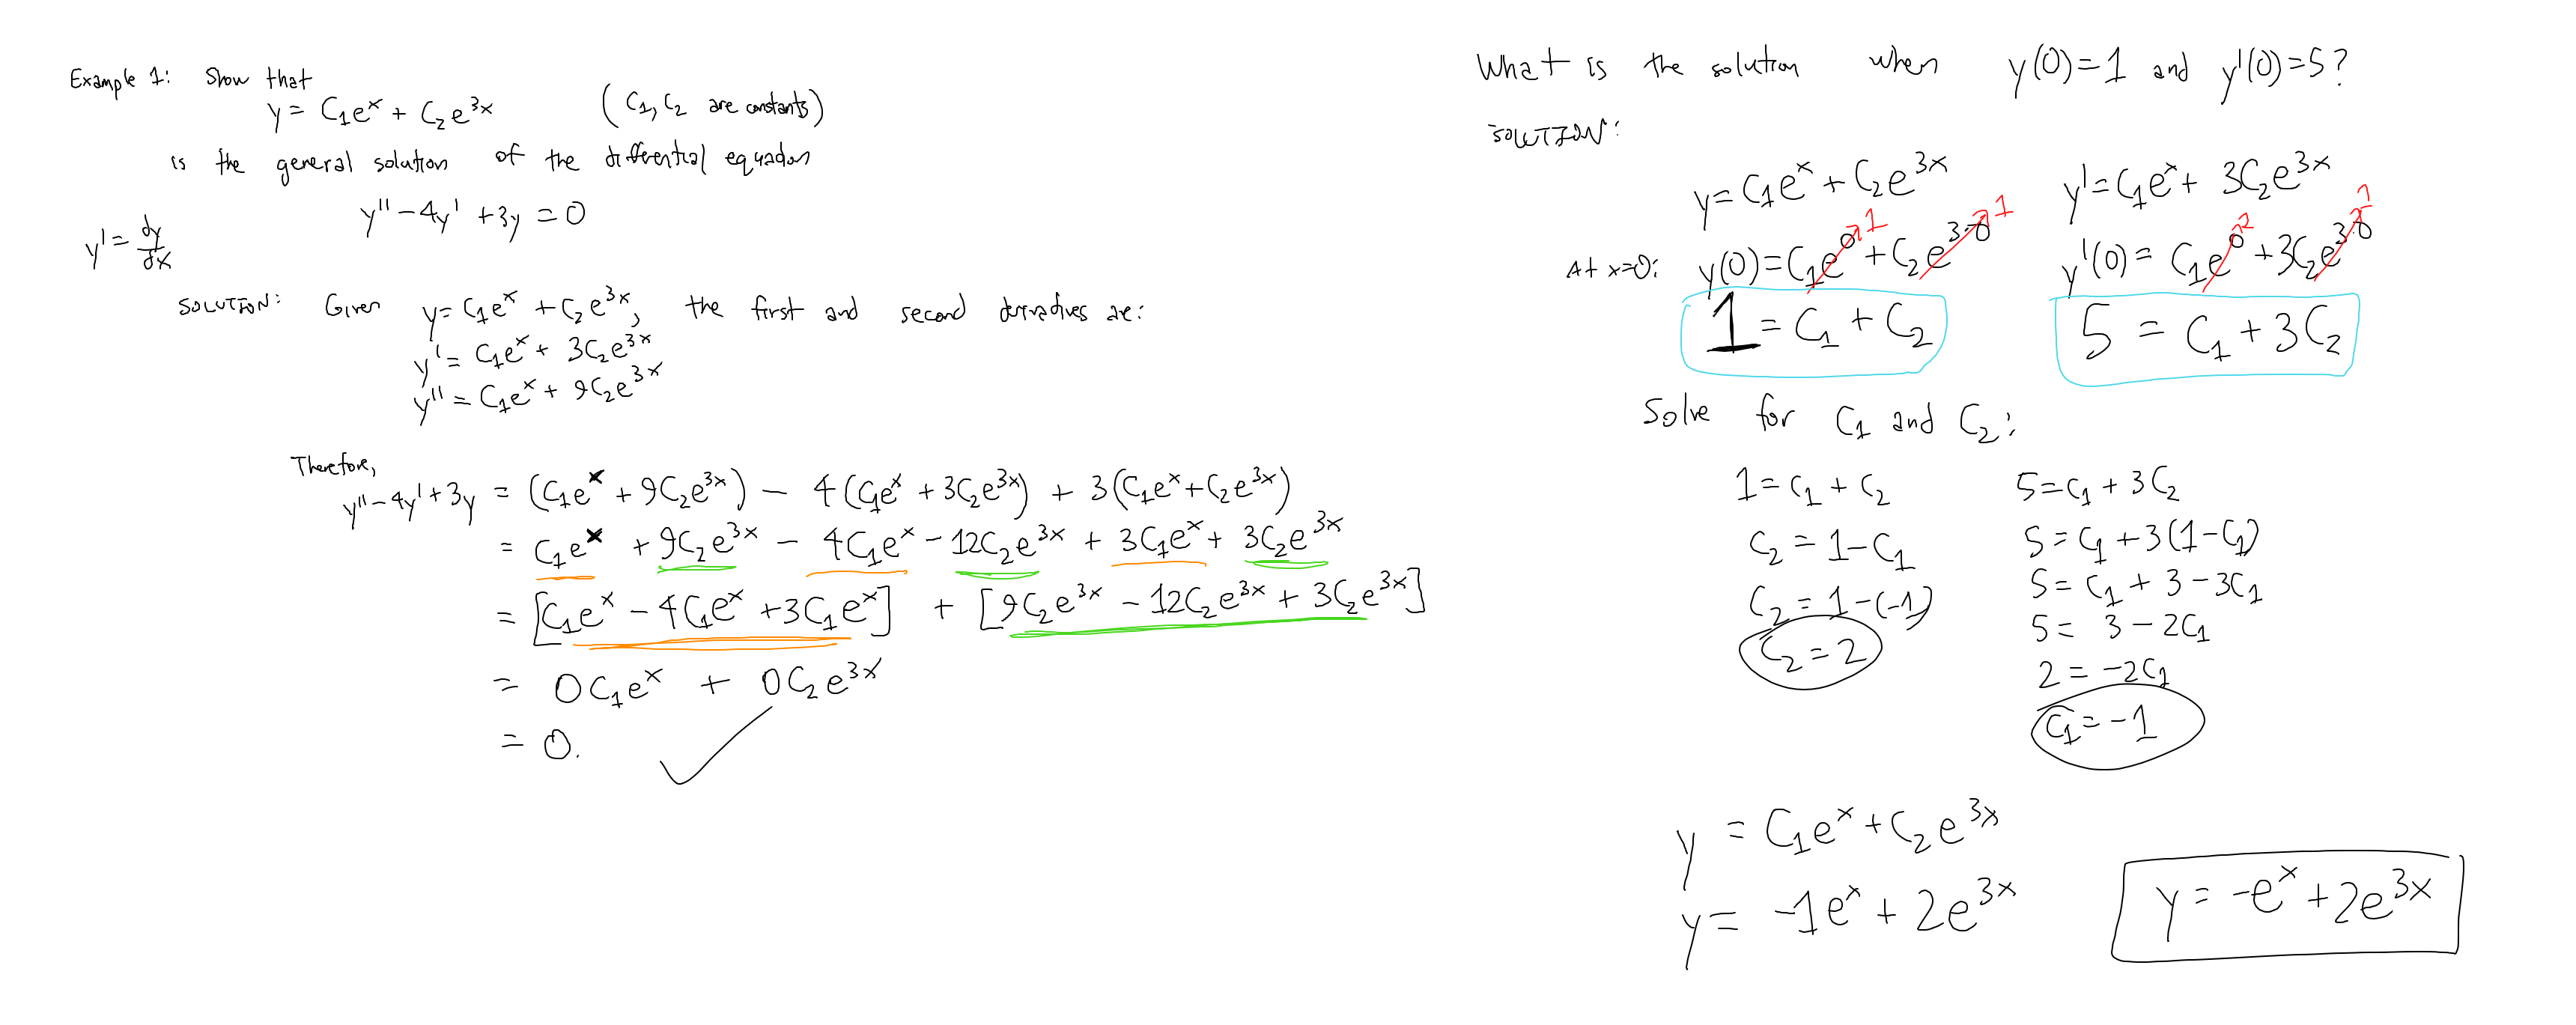 Example 1: Show that
y = C₁eˣ + C₂e³ˣ (C₁, C₂ are constants)
is the general solution of the differential equation
y'' - 4y' + 3y = 0
y' = dy/dx
SOLUTION: Given y = C₁eˣ + C₂e³ˣ, the first and second derivatives are:
y' = C₁eˣ + 3C₂e³ˣ
y'' = C₁eˣ + 9C₂e³ˣ
Therefore,
y'' - 4y' + 3y = (C₁eˣ + 9C₂e³ˣ) - 4(C₁eˣ + 3C₂e³ˣ) + 3(C₁eˣ + C₂e³ˣ)
= C₁eˣ + 9C₂e³ˣ - 4C₁eˣ - 12C₂e³ˣ + 3C₁eˣ + 3C₂e³ˣ
= [C₁eˣ - 4C₁eˣ + 3C₁eˣ] + [9C₂e³ˣ - 12C₂e³ˣ + 3C₂e³ˣ]
= 0C₁eˣ + 0C₂e³ˣ
= 0. ✓
What is the solution when y(0)=1 and y'(0)=5?
SOLUTION:
y = C₁eˣ + C₂e³ˣ
y' = C₁eˣ + 3C₂e³ˣ
At x=0: y(0) = C₁e⁰ ↗1 + C₂e^(3·0) ↗1
y'(0) = C₁e⁰ + 3C₂e^(3·0) ↗1
1 = C₁ + C₂
5 = C₁ + 3C₂
Solve for C₁ and C₂:
1 = C₁ + C₂
C₂ = 1 - C₁
C₂ = 1 - (-1)
C₂ = 2
5 = C₁ + 3C₂
5 = C₁ + 3(1 - C₁)
5 = C₁ + 3 - 3C₁
5 = 3 - 2C₁
2 = -2C₁
C₁ = -1
y = C₁eˣ + C₂e³ˣ
y = -1eˣ + 2e³ˣ
y = -eˣ + 2e³ˣ